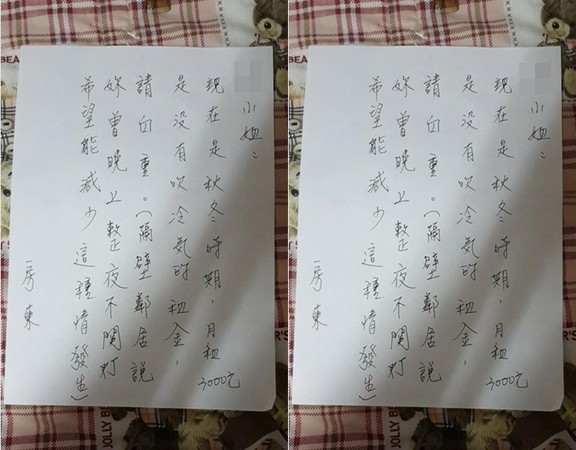 小姐：
現在是秋冬時期，月租3000元
是沒有吹冷気的租金，
請自重。（隔壁鄰居說
妳曾晚上整夜不関灯
希望能減少這種情發生）
房東
JOLLY BE
小姐：
現在是秋冬時期，月租3000元
是沒有吹冷気的租金，
請自重。（隔壁鄰居說
妳曾晚上整夜不関灯
希望能減少這種情發生）
房東
JOLLY BE